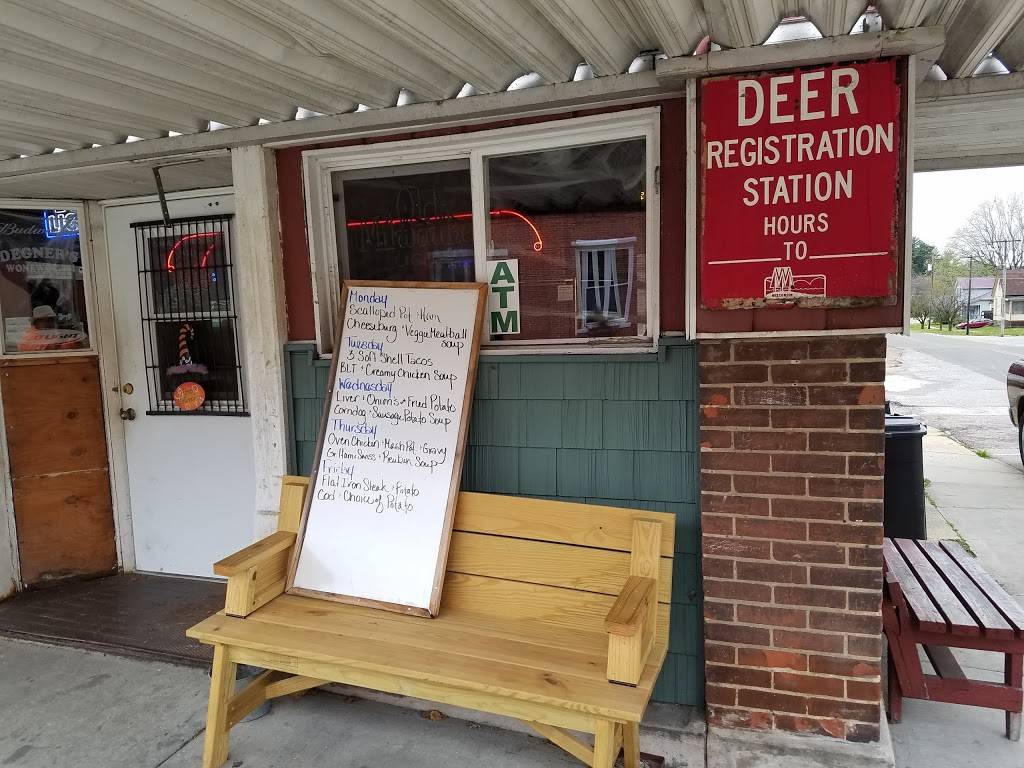 DEER
REGISTRATION
STATION
HOURS
TO
WISCONSIN
ATM
Monday
Scalloped Pot + Ham
Cheeseburg + Veggie Meatball
Soup
Tuesday
3 Soft Shell Tacos
BLT + Creamy Chicken Soup
Wednasday
Liver + Onion's + Fried Potato
Corndog + Sausage Potato Soup
Thursday
Oven Chicken + Mash Pot + Gravy
Gr Ham + Swiss + Reuben Soup
Friday
Flat Iron Steak + Potato
Cod + Choice of Potato
DEGNER'S